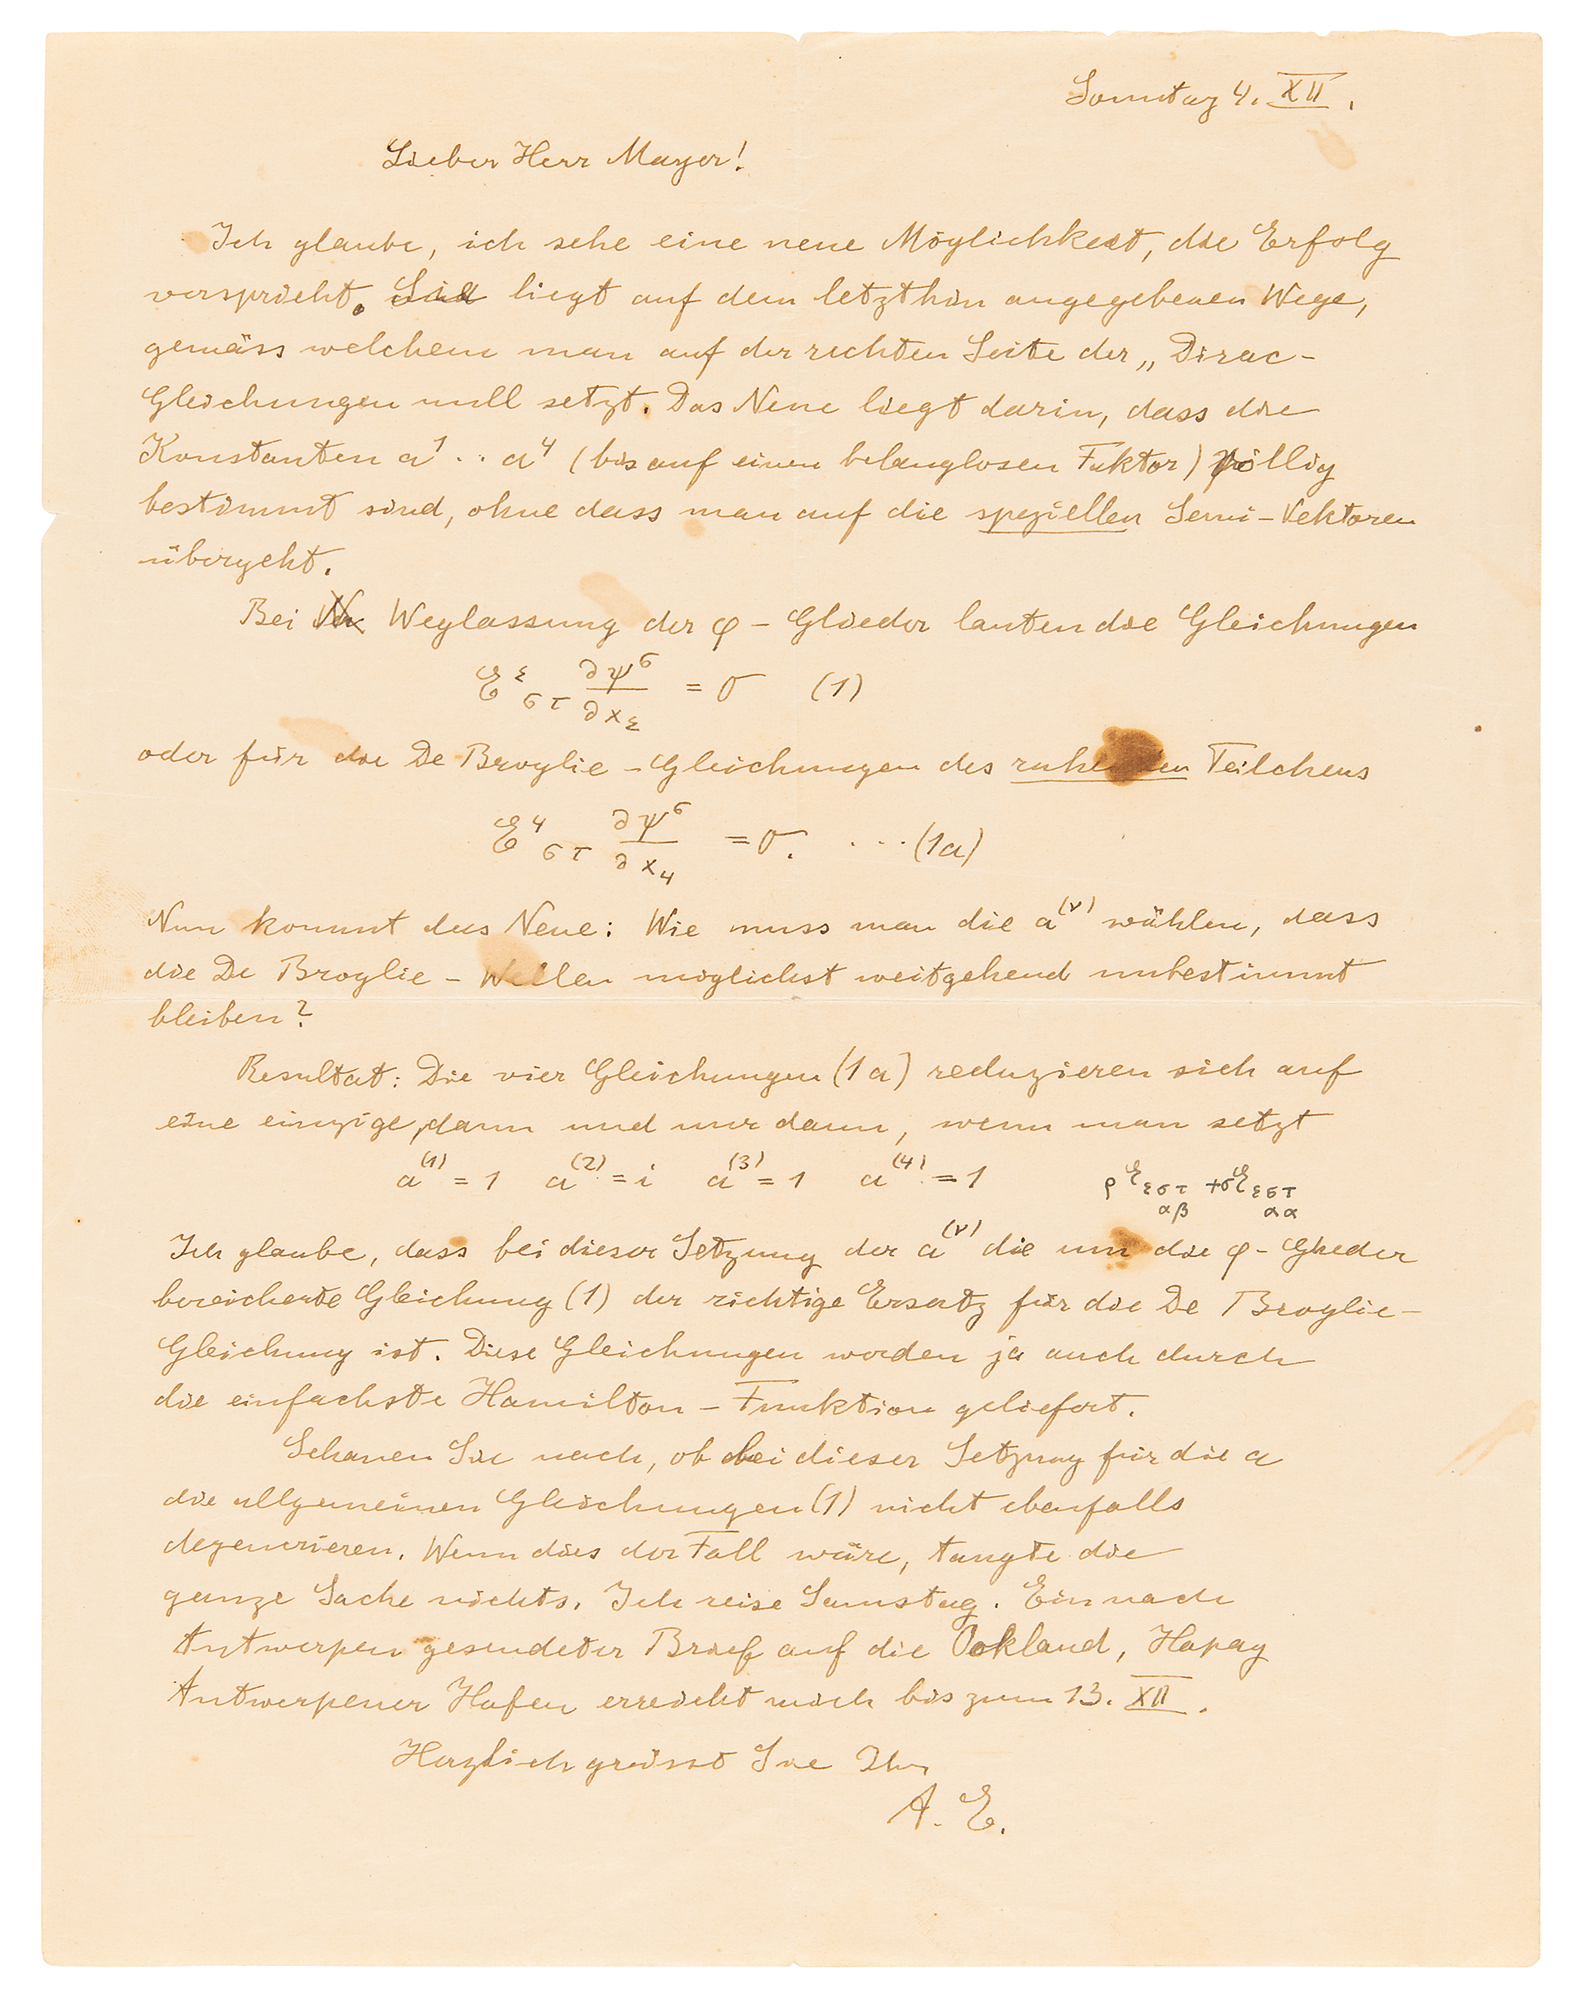 Sonntag 4. XII.
Lieber Herr Mayer!
Ich glaube, ich sehe eine neue Möglichkeit, die Erfolg
verspricht. Sie liegt auf dem letzthin angegebenen Wege,
gemäss welchem man auf der rechten Seite der „Dirac-
Gleichungen null setzt. Das Neue liegt darin, dass die
Konstanten a¹ . . a⁴ (bis auf einen belanglosen Faktor) völlig
bestimmt sind, ohne dass man auf die speziellen Semi-Vektoren
übergeht.
Bei Weglassung der φ-Glieder lauten die Gleichungen
E^ε_στ ∂ψ^σ/∂x_ε = 0 (1)
oder für die De Broglie-Gleichungen des ruhenden Teilchens
E^4_στ ∂ψ^σ/∂x_4 = 0. ...(1a)
Nun kommt das Neue: Wie muss man die a^(ν) wählen, dass
die De Broglie-Wellen möglichst weitgehend unbestimmt
bleiben?
Resultat: Die vier Gleichungen (1a) reduzieren sich auf
eine einzige, dann und nur dann, wenn man setzt
a^(1) = 1 a^(2) = i a^(3) = 1 a^(4) = 1 ρ E_εστ αβ + σ E_εστ αα
Ich glaube, dass bei dieser Setzung der a^(ν) die um die φ-Glieder
bereicherte Gleichung (1) der richtige Ersatz für die De Broglie-
Gleichung ist. Diese Gleichungen werden ja auch durch
die einfachste Hamilton-Funktion geliefert.
Schauen Sie nach, ob bei dieser Setzung für die a
die allgemeinen Gleichungen (1) nicht ebenfalls
degenerieren. Wenn dies der Fall wäre, taugte die
ganze Sache nichts. Ich reise Samstag. Ein nach
Antwerpen gesendeter Brief auf die Oakland, Hapag
Antwerpener Hafen erreicht mich bis zum 13. XII.
Herzlich grüsst Sie Ihr
A. E.